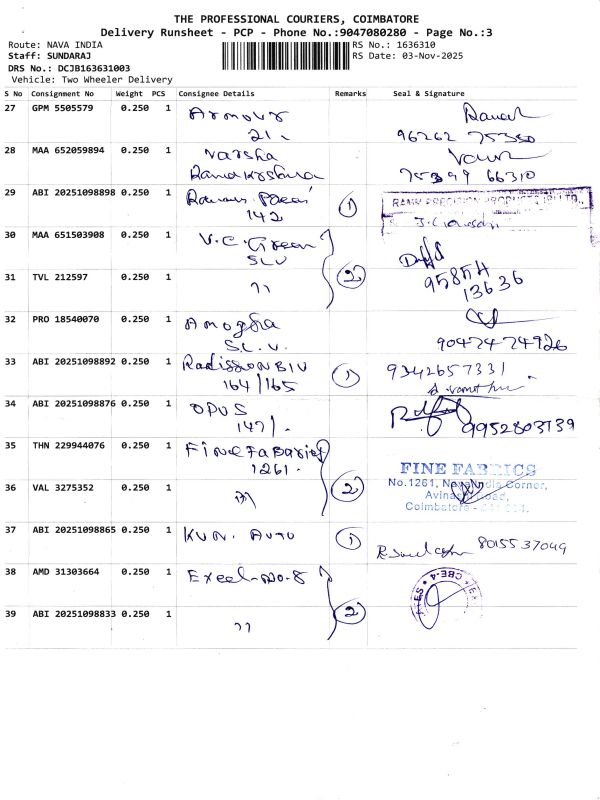 THE PROFESSIONAL COURIERS, COIMBATORE
Delivery Runsheet - PCP - Phone No.:9047080280 - Page No.:3
Route: NAVA INDIA
RS No.: 1636310
Staff: SUNDARAJ
RS Date: 03-Nov-2025
DRS No.: DCJB163631003
Vehicle: Two Wheeler Delivery
S No Consignment No Weight PCS Consignee Details Remarks Seal & Signature
27 GPM 5505579 0.250 1 Armour
21. 96262 75350
28 MAA 652059894 0.250 1 Varsha
29 ABI 20251098898 0.250 1 1 RAMM PRECISION PRODUCTS (P) LTD.,
142
30 MAA 651503908 0.250 1 V.C. Green
SLV 2
31 TVL 212597 0.250 1 "
95854
13636
32 PRO 18540070 0.250 1
S.L.V. 90474 74926
33 ABI 20251098892 0.250 1 Radission BIV 1 9342657331
164/165
34 ABI 20251098876 0.250 1 OPUS
147/. 9952803739
35 THN 229944076 0.250 1 Fine
1261. FINE FABRICS
36 VAL 3275352 0.250 1 " 2 No.1261, Nava India Corner,
Avinashi Road,
Coimbatore
37 ABI 20251098865 0.250 1 KUN. Auto 1 8015537049
38 AMD 31303664 0.250 1 Excel-No.8 CBE-4
39 ABI 20251098833 0.250 1 " 2